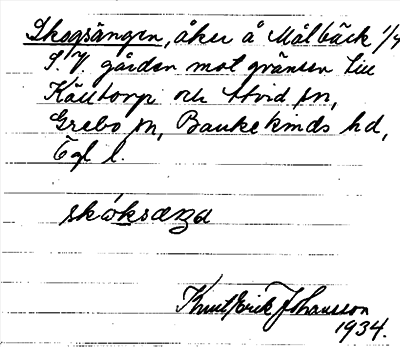 Skogsängen, åker å Målbäck 1/4
S. V. gården mot gränsen till
Källtorp och Åtvid sn,
Grebo sn, Bankekinds hd,
Ögl l.
skóksæŋa
Knut Erik Johansson
1934.